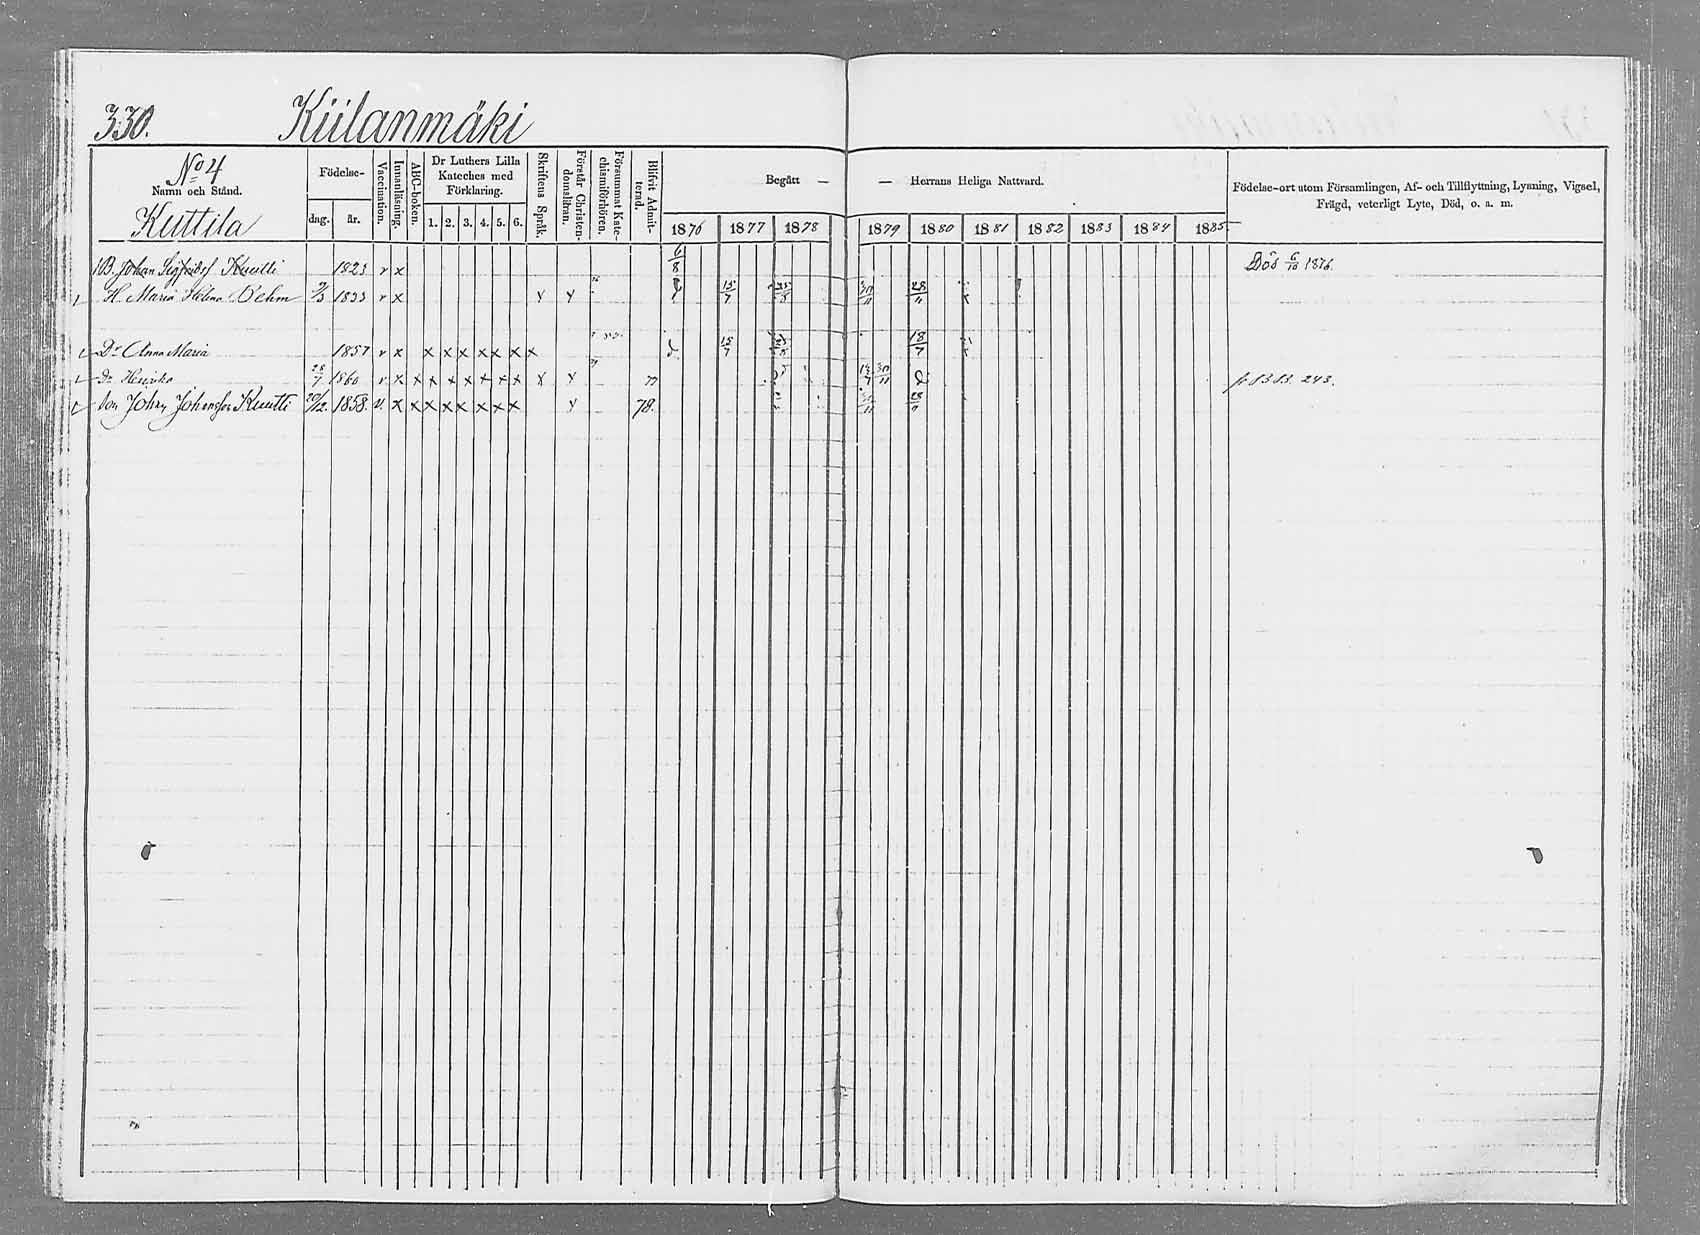 330. Kiilanmäki
No 4
Namn och Stånd.
Kuttila
Födelse-
dag. år.
Vaccination.
Innanläsning.
ABC-boken.
Dr Luthers Lilla
Kateches med
Förklaring.
1. 2. 3. 4. 5. 6.
Skriftens Språk.
Förstår Christen-
domsläran.
Försummat Kate-
chismiförhören.
Blifvit Admit-
terad.
Begått — — Herrans Heliga Nattvard.
1876 1877 1878 1879 1880 1881 1882 1883 1884 1885
Födelse-ort utom Församlingen, Af- och Tillflyttning, Lysning, Vigsel,
Frägd, veterligt Lyte, Död, o. a. m.
B. Johan Sigfridsf Knutti 1823 v x 6/8 Död 6/10 1876.
H. Maria Helena Behm 9/3 1833 v x 15/7 28/11
Dr Anna Maria 1857 v x x x x x x x x 15/7 18/7
Dr Henrika 28/7 1860 v x x x x x x x 77 30/11 243.
Son Johan Johansson Knutti 20/12. 1858. v. x x x x x x x 78. 28/11